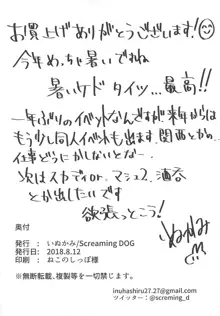 お買上げありがとうございます!
今年めっちゃ暑いですね
暑いケドタイツ…最高!!
一年ぶりのイベントなんですが来年からは
もう少し同人イベントも出ます。関西とから…
仕事どうにかしないとなー
次はスカディオルト、マシュ2、酒呑
とか出したいです
欲張っとこう!
いぬかみ
奥付
発行:いぬかみ/Screaming DOG
発行日:2018.8.12
印刷:ねこのしっぽ様
※無断転載、複製等を一切禁じます。
inuhashiru27.27@gmail.com
ツイッター:@scremimg_d